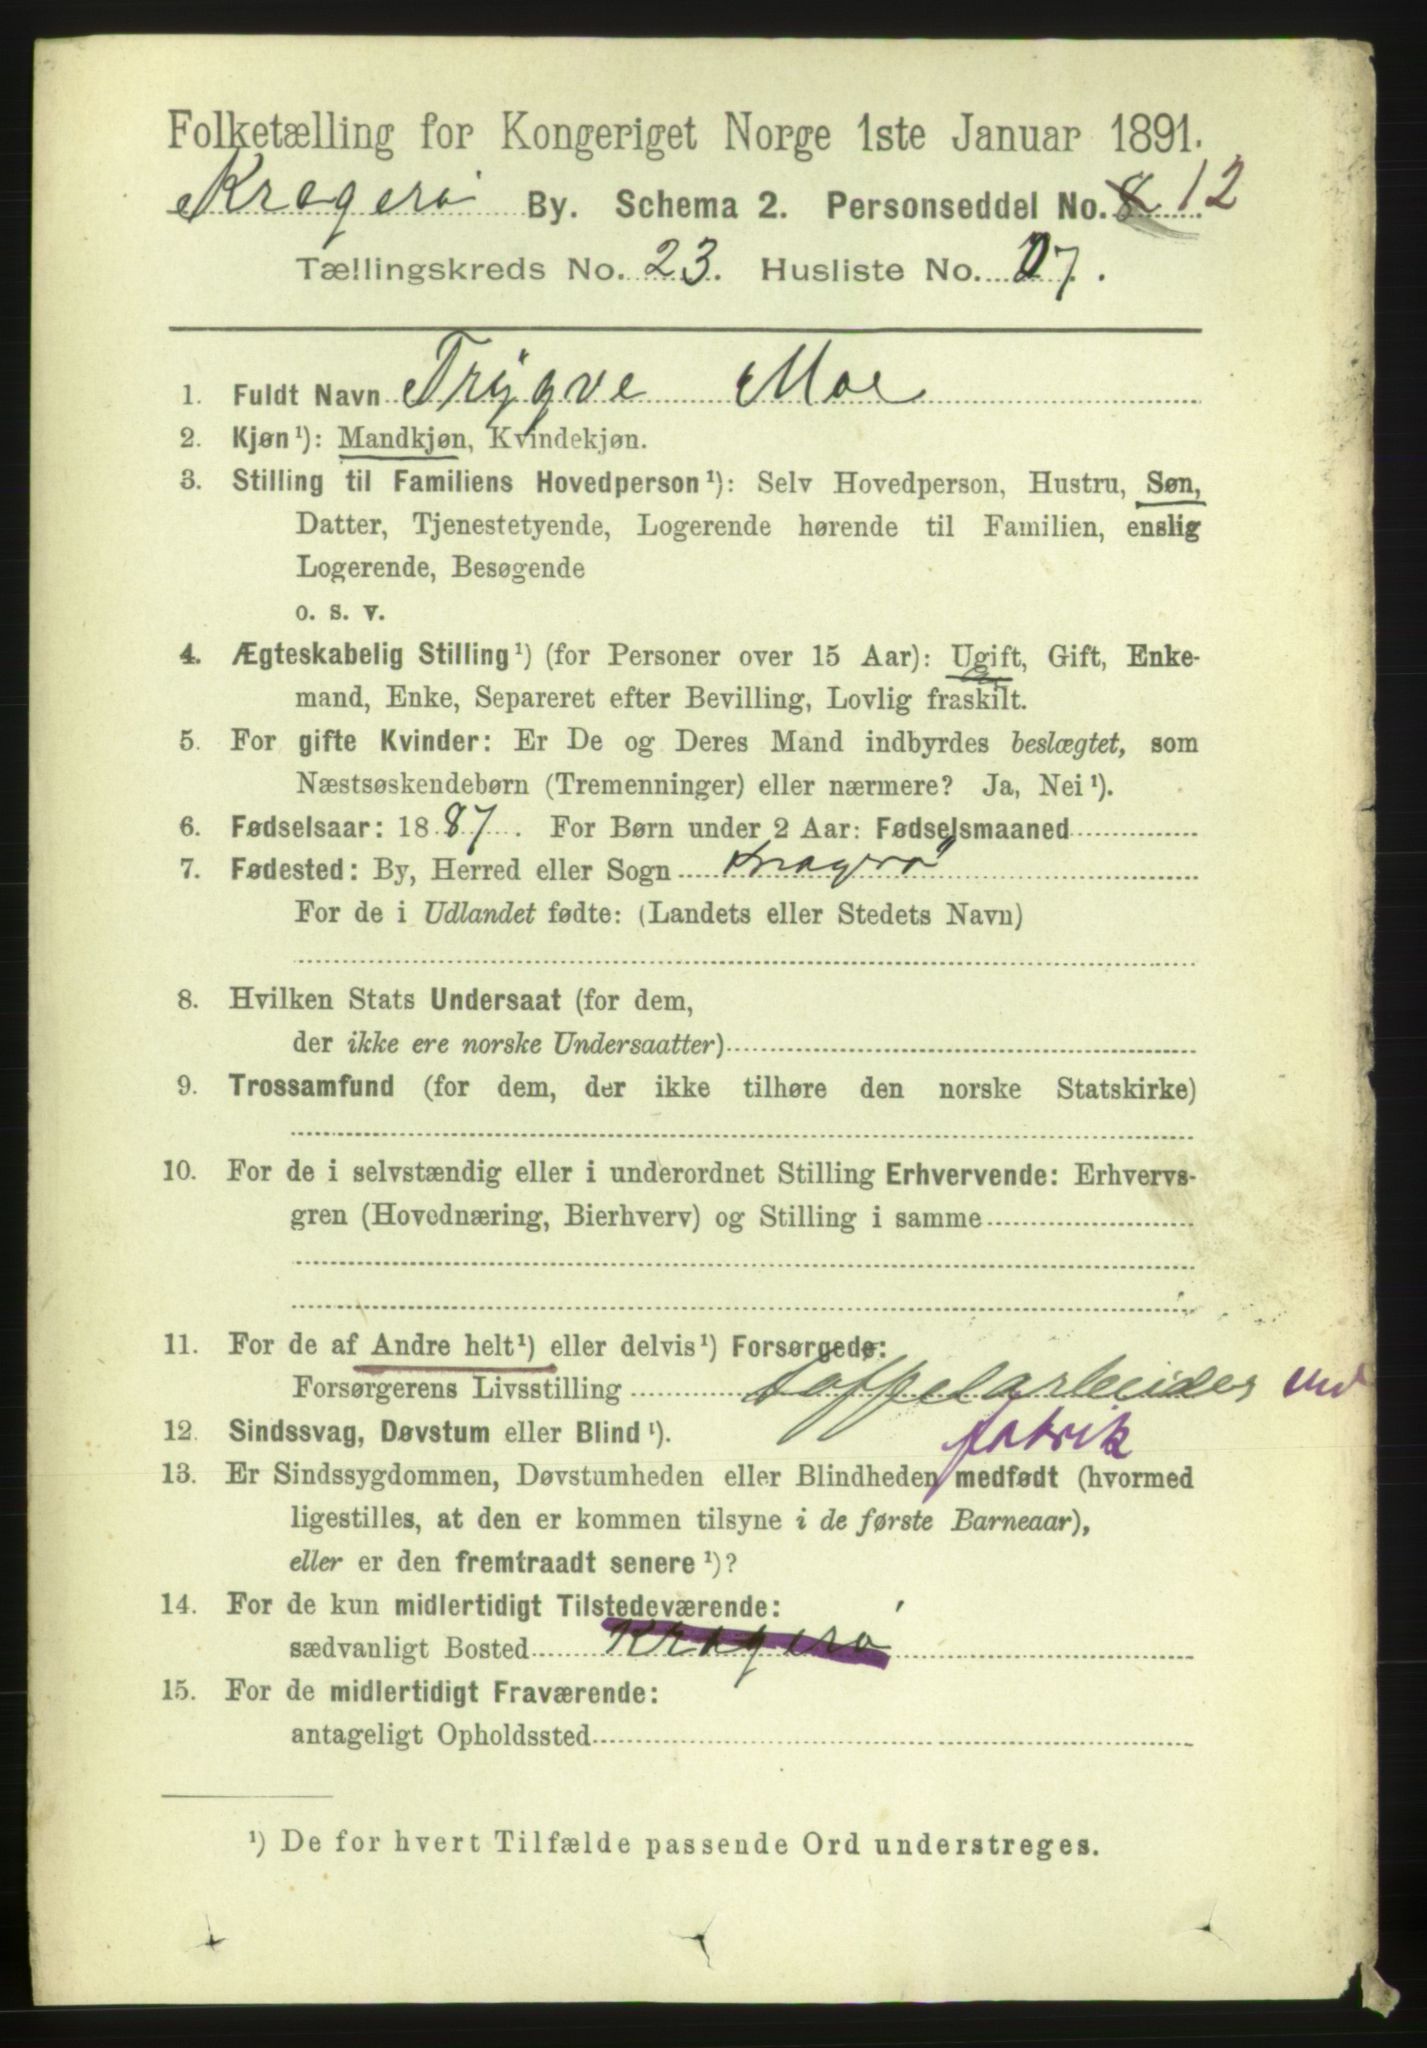 Folketælling for Kongeriget Norge 1ste Januar 1891.
Kragerø By. Schema 2. Personseddel No. 8 12
Tællingskreds No. 23. Husliste No. 07.
1. Fuldt Navn Trygve Moe
2. Kjøn¹): Mandkjøn, Kvindekjøn.
3. Stilling til Familiens Hovedperson¹): Selv Hovedperson, Hustru, Søn,
Datter, Tjenestetyende, Logerende hørende til Familien, enslig
Logerende, Besøgende
o. s. v.
4. Ægteskabelig Stilling¹) (for Personer over 15 Aar): Ugift, Gift, Enke-
mand, Enke, Separeret efter Bevilling, Lovlig fraskilt.
5. For gifte Kvinder: Er De og Deres Mand indbyrdes beslægtet, som
Næstsøskendebørn (Tremenninger) eller nærmere? Ja, Nei¹).
6. Fødselsaar: 1887. For Børn under 2 Aar: Fødselsmaaned
7. Fødested: By, Herred eller Sogn Kragerø
For de i Udlandet fødte: (Landets eller Stedets Navn)
8. Hvilken Stats Undersaat (for dem,
der ikke ere norske Undersaatter)
9. Trossamfund (for dem, der ikke tilhøre den norske Statskirke)
10. For de i selvstændig eller i underordnet Stilling Erhvervende: Erhvervs-
gren (Hovednæring, Bierhverv) og Stilling i samme
11. For de af Andre helt¹) eller delvis¹) Forsørgede:
Forsørgerens Livsstilling Toffelarbeider ved
fabrik
12. Sindssvag, Døvstum eller Blind¹).
13. Er Sindssygdommen, Døvstumheden eller Blindheden medfødt (hvormed
ligestilles, at den er kommen tilsyne i de første Barneaar),
eller er den fremtraadt senere¹)?
14. For de kun midlertidigt Tilstedeværende:
sædvanligt Bosted Kragerø
15. For de midlertidigt Fraværende:
antageligt Opholdssted
¹) De for hvert Tilfælde passende Ord understreges.